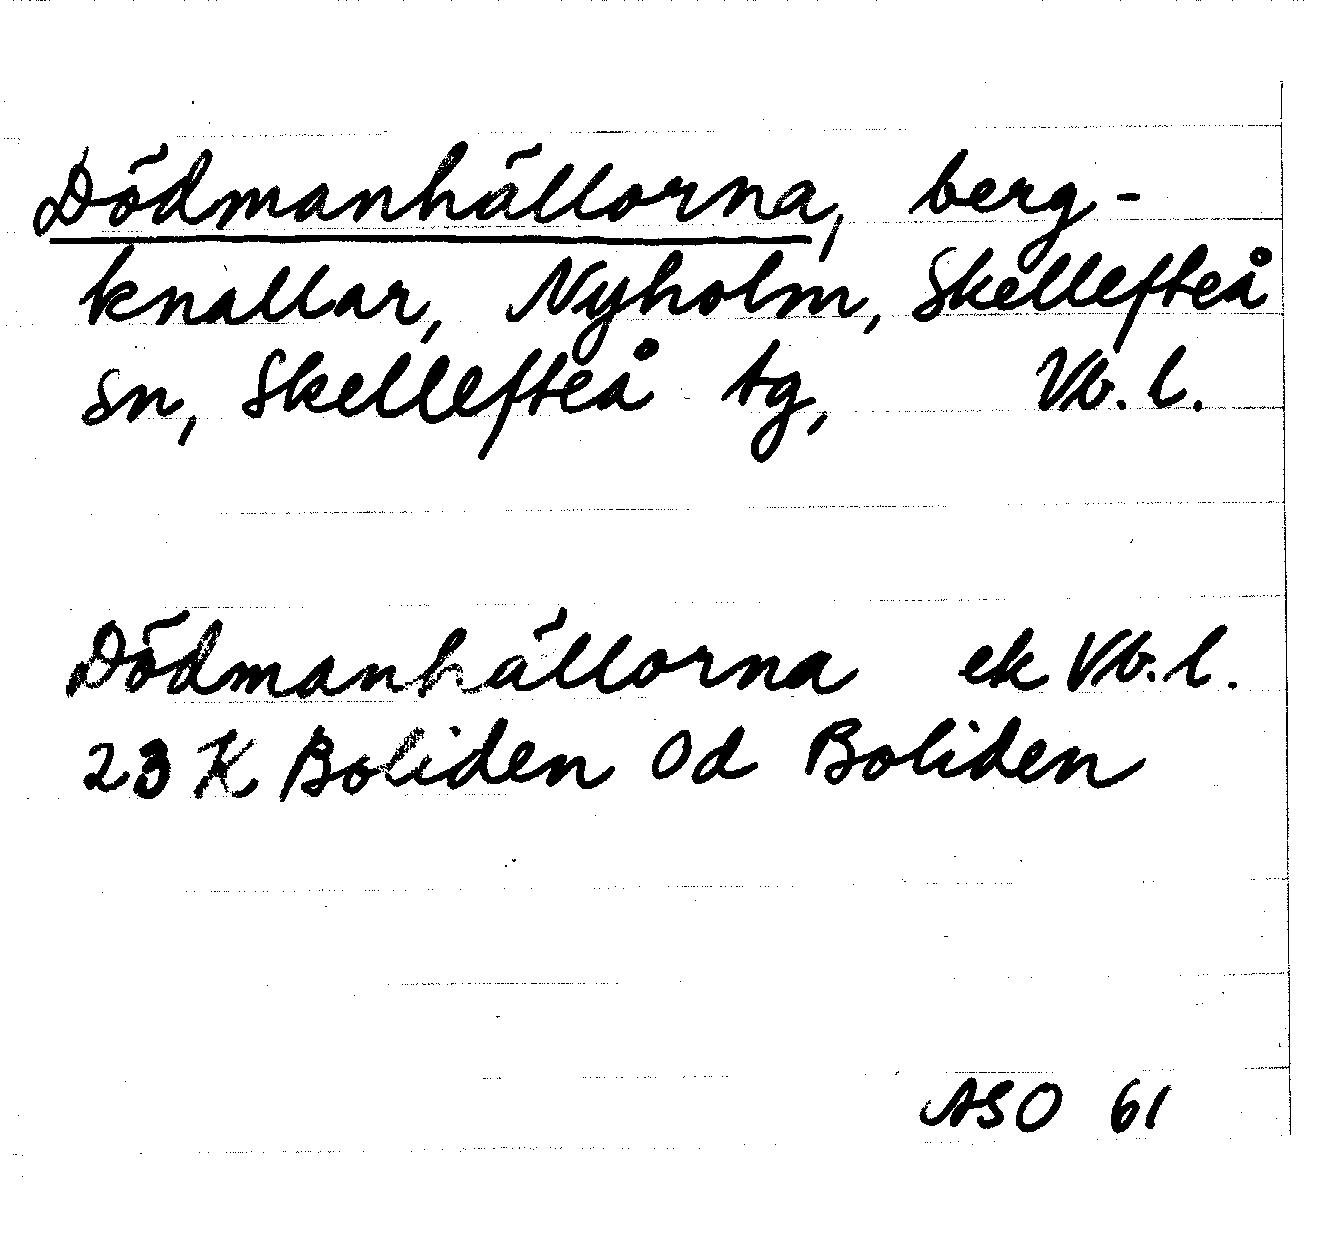 Dödmanhällorna, berg-
knallar, Nyholm, Skellefteå
sn, Skellefteå tg, Vb. l.
Dödmanhällorna ek Vb. l.
23 K Boliden Od Boliden
ASO 61